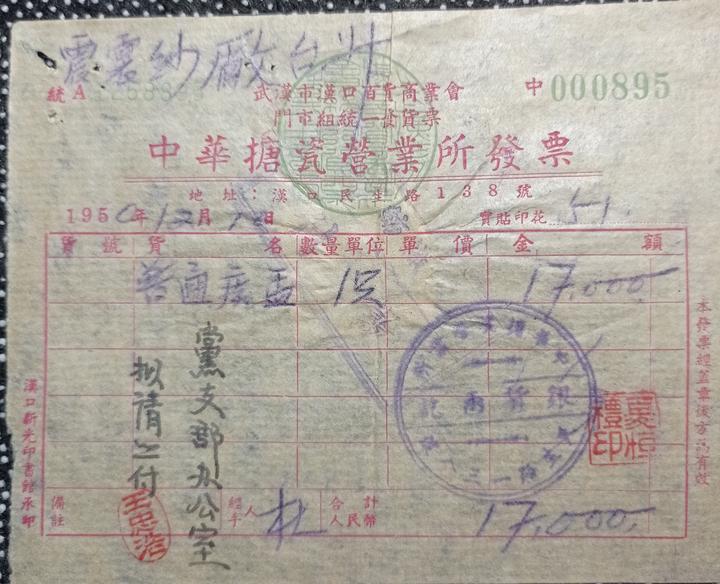 震寰纱廠台升
統A
武漢市漢口百貨商業會
中000895
門市組統一發貨票
中華搪瓷營業所發票
地址：漢口民生路138號
1950年12月 日
實貼印花 51.
貨號 貨名 數量單位 單價 金額
普通痰盂 1只 17,000
黨支部办公室
拟請上付
銀貨兩訖
本發票經蓋章後方為有效
漢口新光印書館承印
備註
經手人 杜
合計人民幣 17,000.